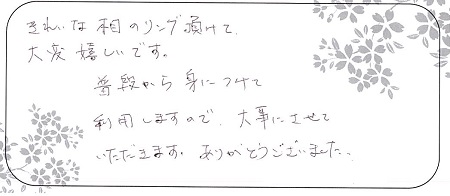 きれいな相のリング頂けて、
大変嬉しいです。
普段から身につけて
利用しますので、大事にさせて
いただきます。ありがとうございました。